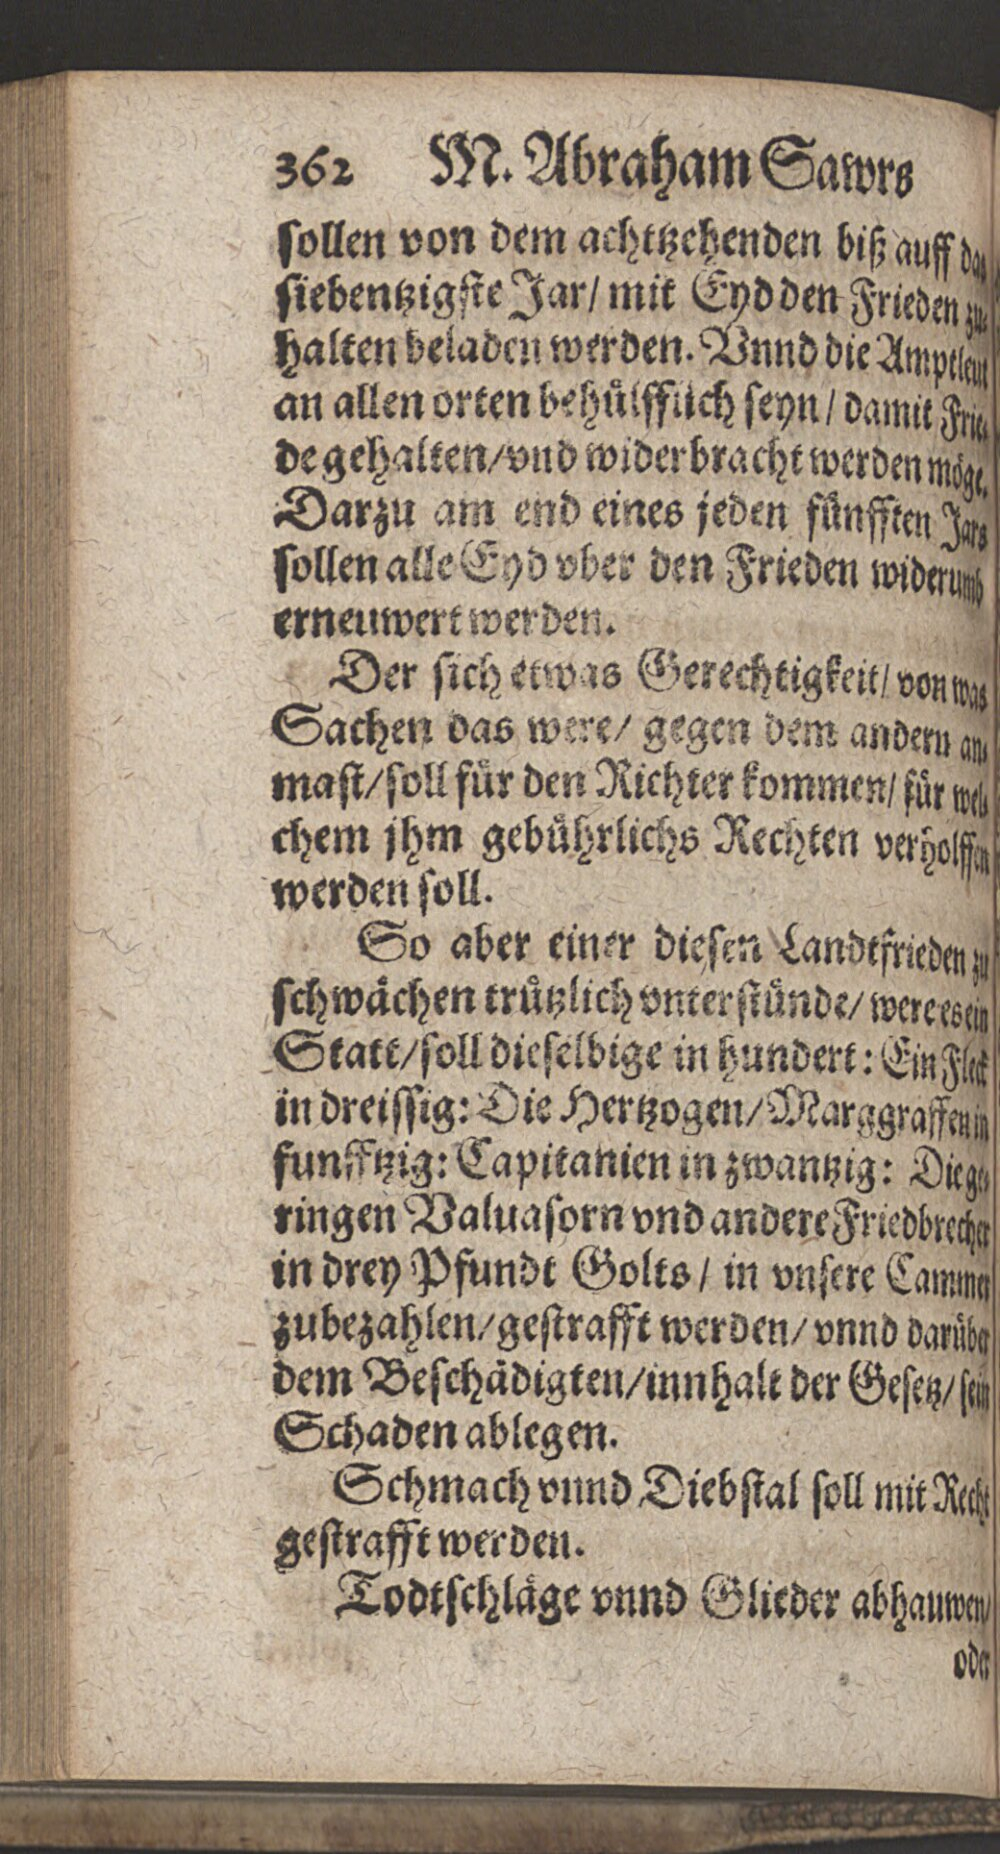 362 M. Abraham Sawrs
sollen von dem achtzehenden biß auff das
siebentzigste Jar/ mit Eyd den Frieden zu-
halten beladen werden. Vnnd die Amptleut
an allen orten behülfflich seyn/ damit Frie-
de gehalten/vnd widerbracht werden möge.
Darzu am end eines jeden fünfften Jars
sollen alle Eyd vber den Frieden widerumb
erneuwert werden.
Der sich etwas Gerechtigkeit/ von was
Sachen das were/ gegen dem andern an-
mast/soll für den Richter kommen/ für wel-
chem jhm gebührlichs Rechten verholffen
werden soll.
So aber einer diesen Landtfrieden zu
schwächen trützlich vnterstünde/ were es ein
Statt/soll dieselbige in hundert: Ein Fleck
in dreissig: Die Hertzogen/Marggraffen in
funfftzig: Capitanien in zwantzig: Die ge-
ringen Valuasorn vnd andere Friedbrecher
in drey Pfundt Golts/ in vnsere Cammer
zubezahlen/gestrafft werden/ vnnd darüber
dem Beschädigten/innhalt der Gesetz/ sein
Schaden ablegen.
Schmach vnnd Diebstal soll mit Recht
gestrafft werden.
Todtschläge vnnd Glieder abhauwen/
oder